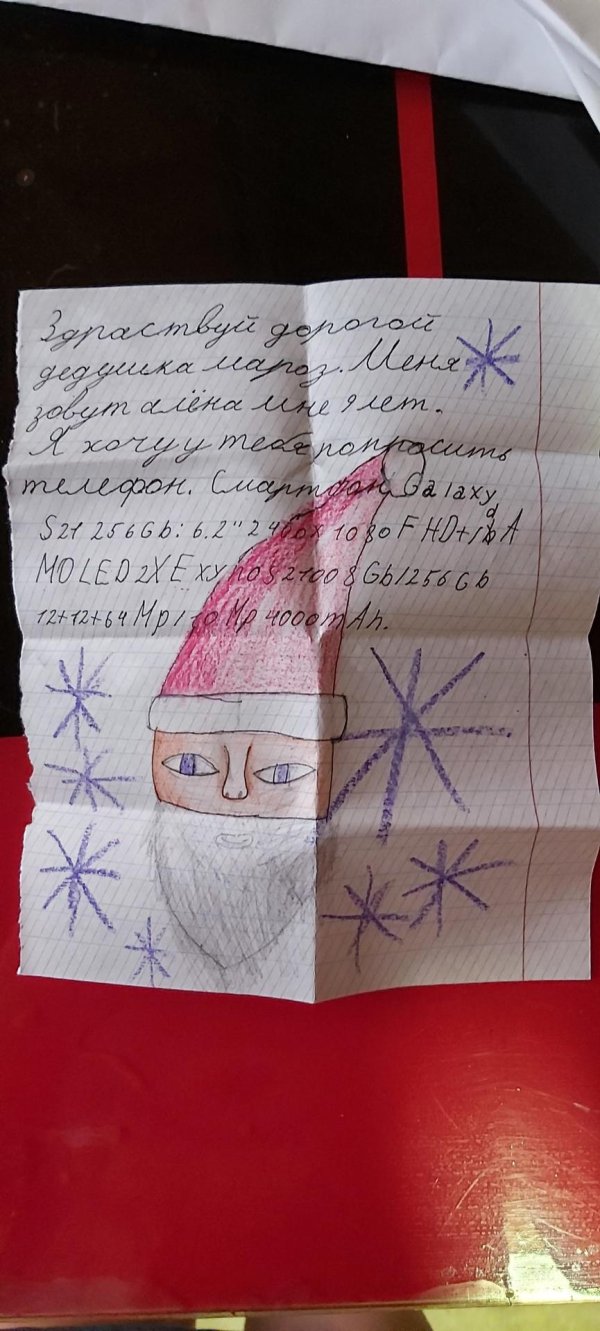 Здраствуй дорогой
дедушка мароз. Меня
зовут алёна мне 9 лет.
Я хочу у тебя попросить
телефон. Смартфон Galaxy
S21 256Gb: 6.2" 2400x1080 FHD+/
MOLED 2X Exynos 2100 8Gb/256Gb
12+12+64Mp/10Mp 4000mAh.